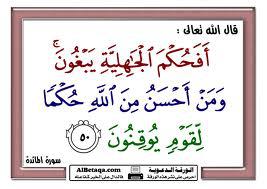 قال الله تعالى :
أَفَحُكْمَ ٱلْجَٰهِلِيَّةِ يَبْغُونَ ۚ
وَمَنْ أَحْسَنُ مِنَ ٱللَّهِ حُكْمًا
لِّقَوْمٍ يُوقِنُونَ ٥٠
سورة المائدة
الورقة الدعوية
AlBetaqa.com